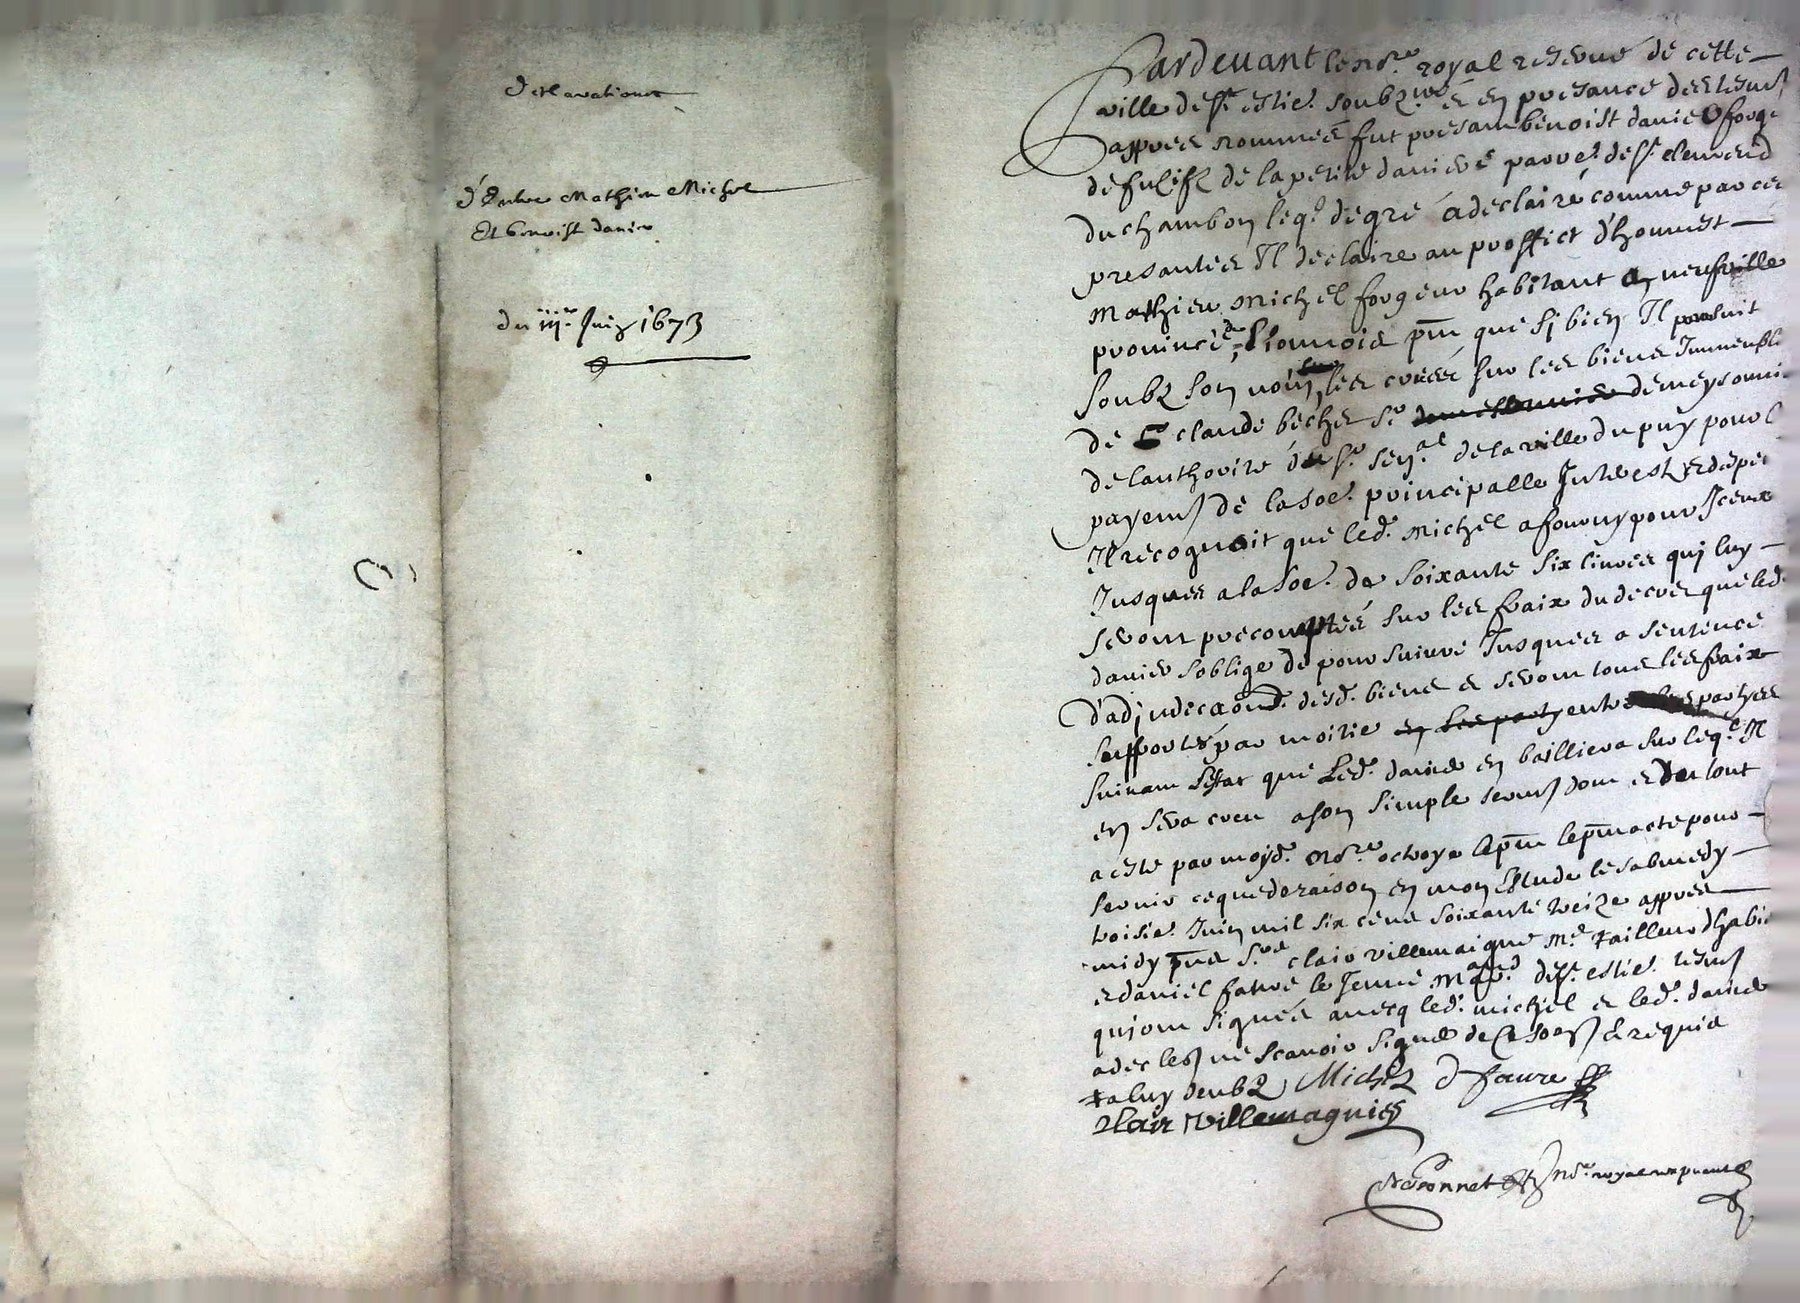 Declarations
d'Entre Mathieu Michel
Et benoist danier
du iii.e Juin 1673
Pardevant le no.re royal reservé de cette
ville de St estie. soubz.né & en presance des tesm.
appres nommés fut presant benoist danier forge
de de la petite daniere parre. de St clemend
du chambon leq.l de gré a declairé comme par ces
presantes Il declaire au proffict d'honnest
Mathieu Michel forgeur habitant a neufville
province de Lionnois pnt que si bien Il poursuit
soubz son nom les criées sur les biens Immeuble
de Sr claude becher Sr de meysonni
de lauthorité du Sr sen.al de la ville du puy pour l
payem de la soe. principalle Interest & despe
Il recognoit que led. Michel a forny pour Iceux
Jusques a la soe. de soixante six livres qui luy
seront precomptés sur les fraix du decret que led.
danier soblige de poursuivre Jusques a sentence
d'adjudicaon desd. biens & seront tous les fraix
supportés par moitié entre les partyes
suivant lestat que led. danier en bailliera sur leq.l Il
en sera creu a son simple serm dont & du tout
a esté par moyd. no.re octroye le pnt acte pour
servir ce que de raison en mon Estude le sabmedy
troisie. Juin mil six cens soixante treize appres
midy pns S.rs clair villemaigne M.e tailleur d'habi
& daniel faure le Jeune March.d de St estie. tesm
qui ont signés avecq led. michel & led. danier
a declé ne scavoir signer de ce somm & requis
a luy deubz Michel D faure
Clair Villemagnies
no.re royal